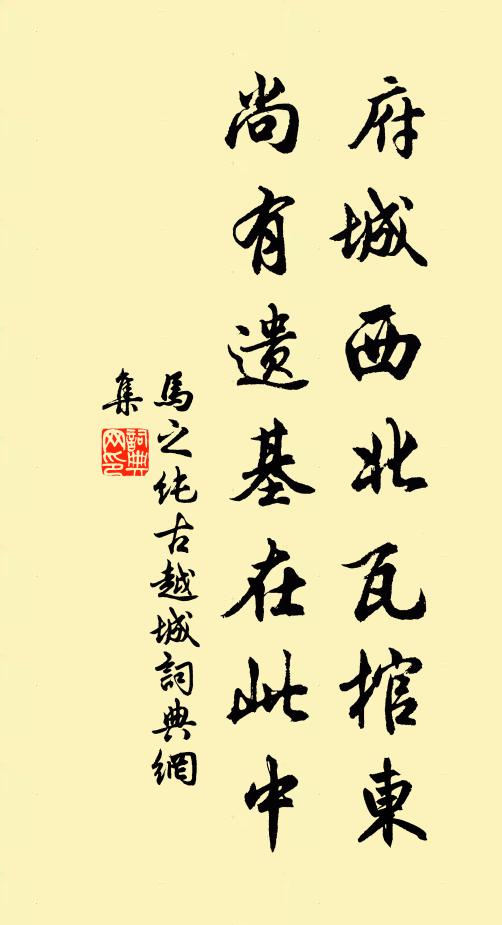 府城西北瓦棺東
尚有遺基在此中
馬之純古越城詞典網
集
詞典網印